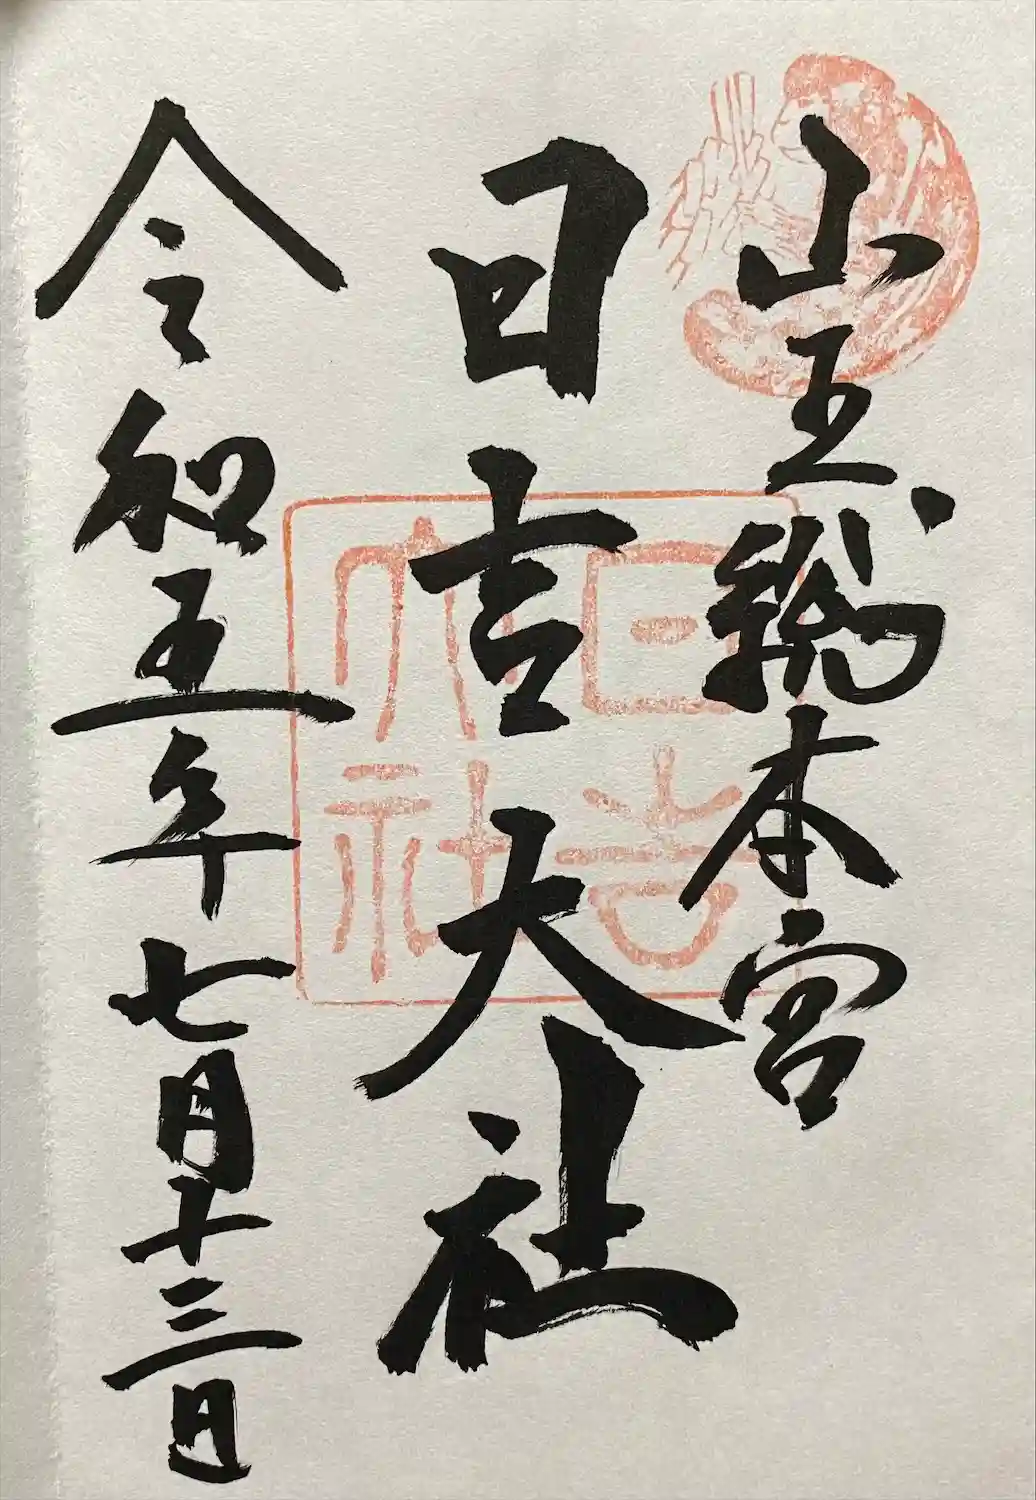 山王総本宮
日吉大社
日吉大社
令和五年七月十三日